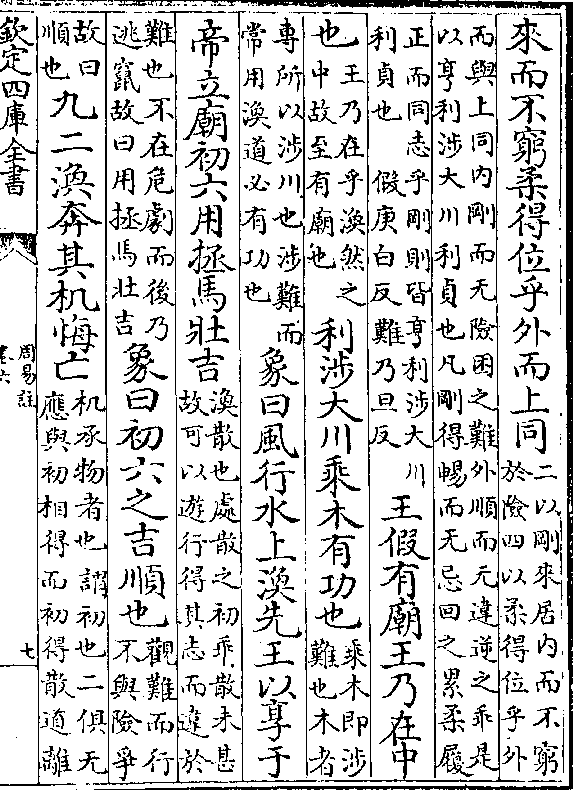 來而不窮柔得位乎外而上同二以剛來居内而不窮於險四以柔得位乎外
而與上同内剛而无險困之難外順而无違逆之乖是以亨利涉大川利貞也凡剛得暢而无忌回之累柔履
正而同志乎剛則皆亨利涉大川利貞也 假庚白反難乃旦反 王假有廟王乃在中
也王乃在乎渙然之中故至有廟也利涉大川乘木有功也乘木即涉難也木者
專所以涉川也涉難而常用渙道必有功也象曰風行水上渙先王以享于
帝立廟初六用拯馬壯吉渙散也處散之初乖散未甚故可以遊行得其志而違於
難也不在危劇而後乃逃竄故曰用拯馬壯吉象曰初六之吉順也觀難而行不與險爭
故曰順也九二渙奔其机悔亡机承物者也謂初也二俱无應與初相得而初得散道離
欽定四庫全書
周易註
卷六
七